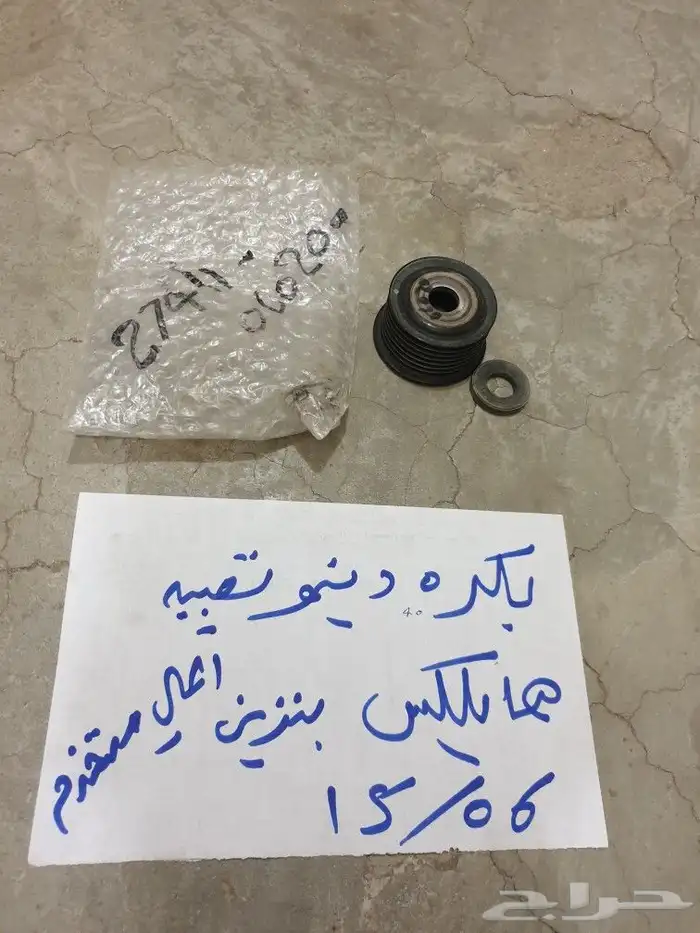 27411-
0C020-
بكره دينمو
هايلكس بنزين اصلي مستخدم
15/06
حراج